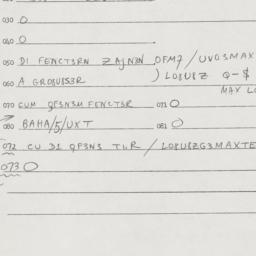 030 O
040 O
050 DI FENCT3RN ZAJN3N OFM7 / UVG3MAX
060 A GROBUS3R ) LOBUBZ Q-$
MAX LO
070 CUM QF3N3M FENCT3R 071 O
080 BAHA/5/UXT 081 O
072 CU D1 QF3N3 TUR / LOBUBZG3MAXTE
073 O